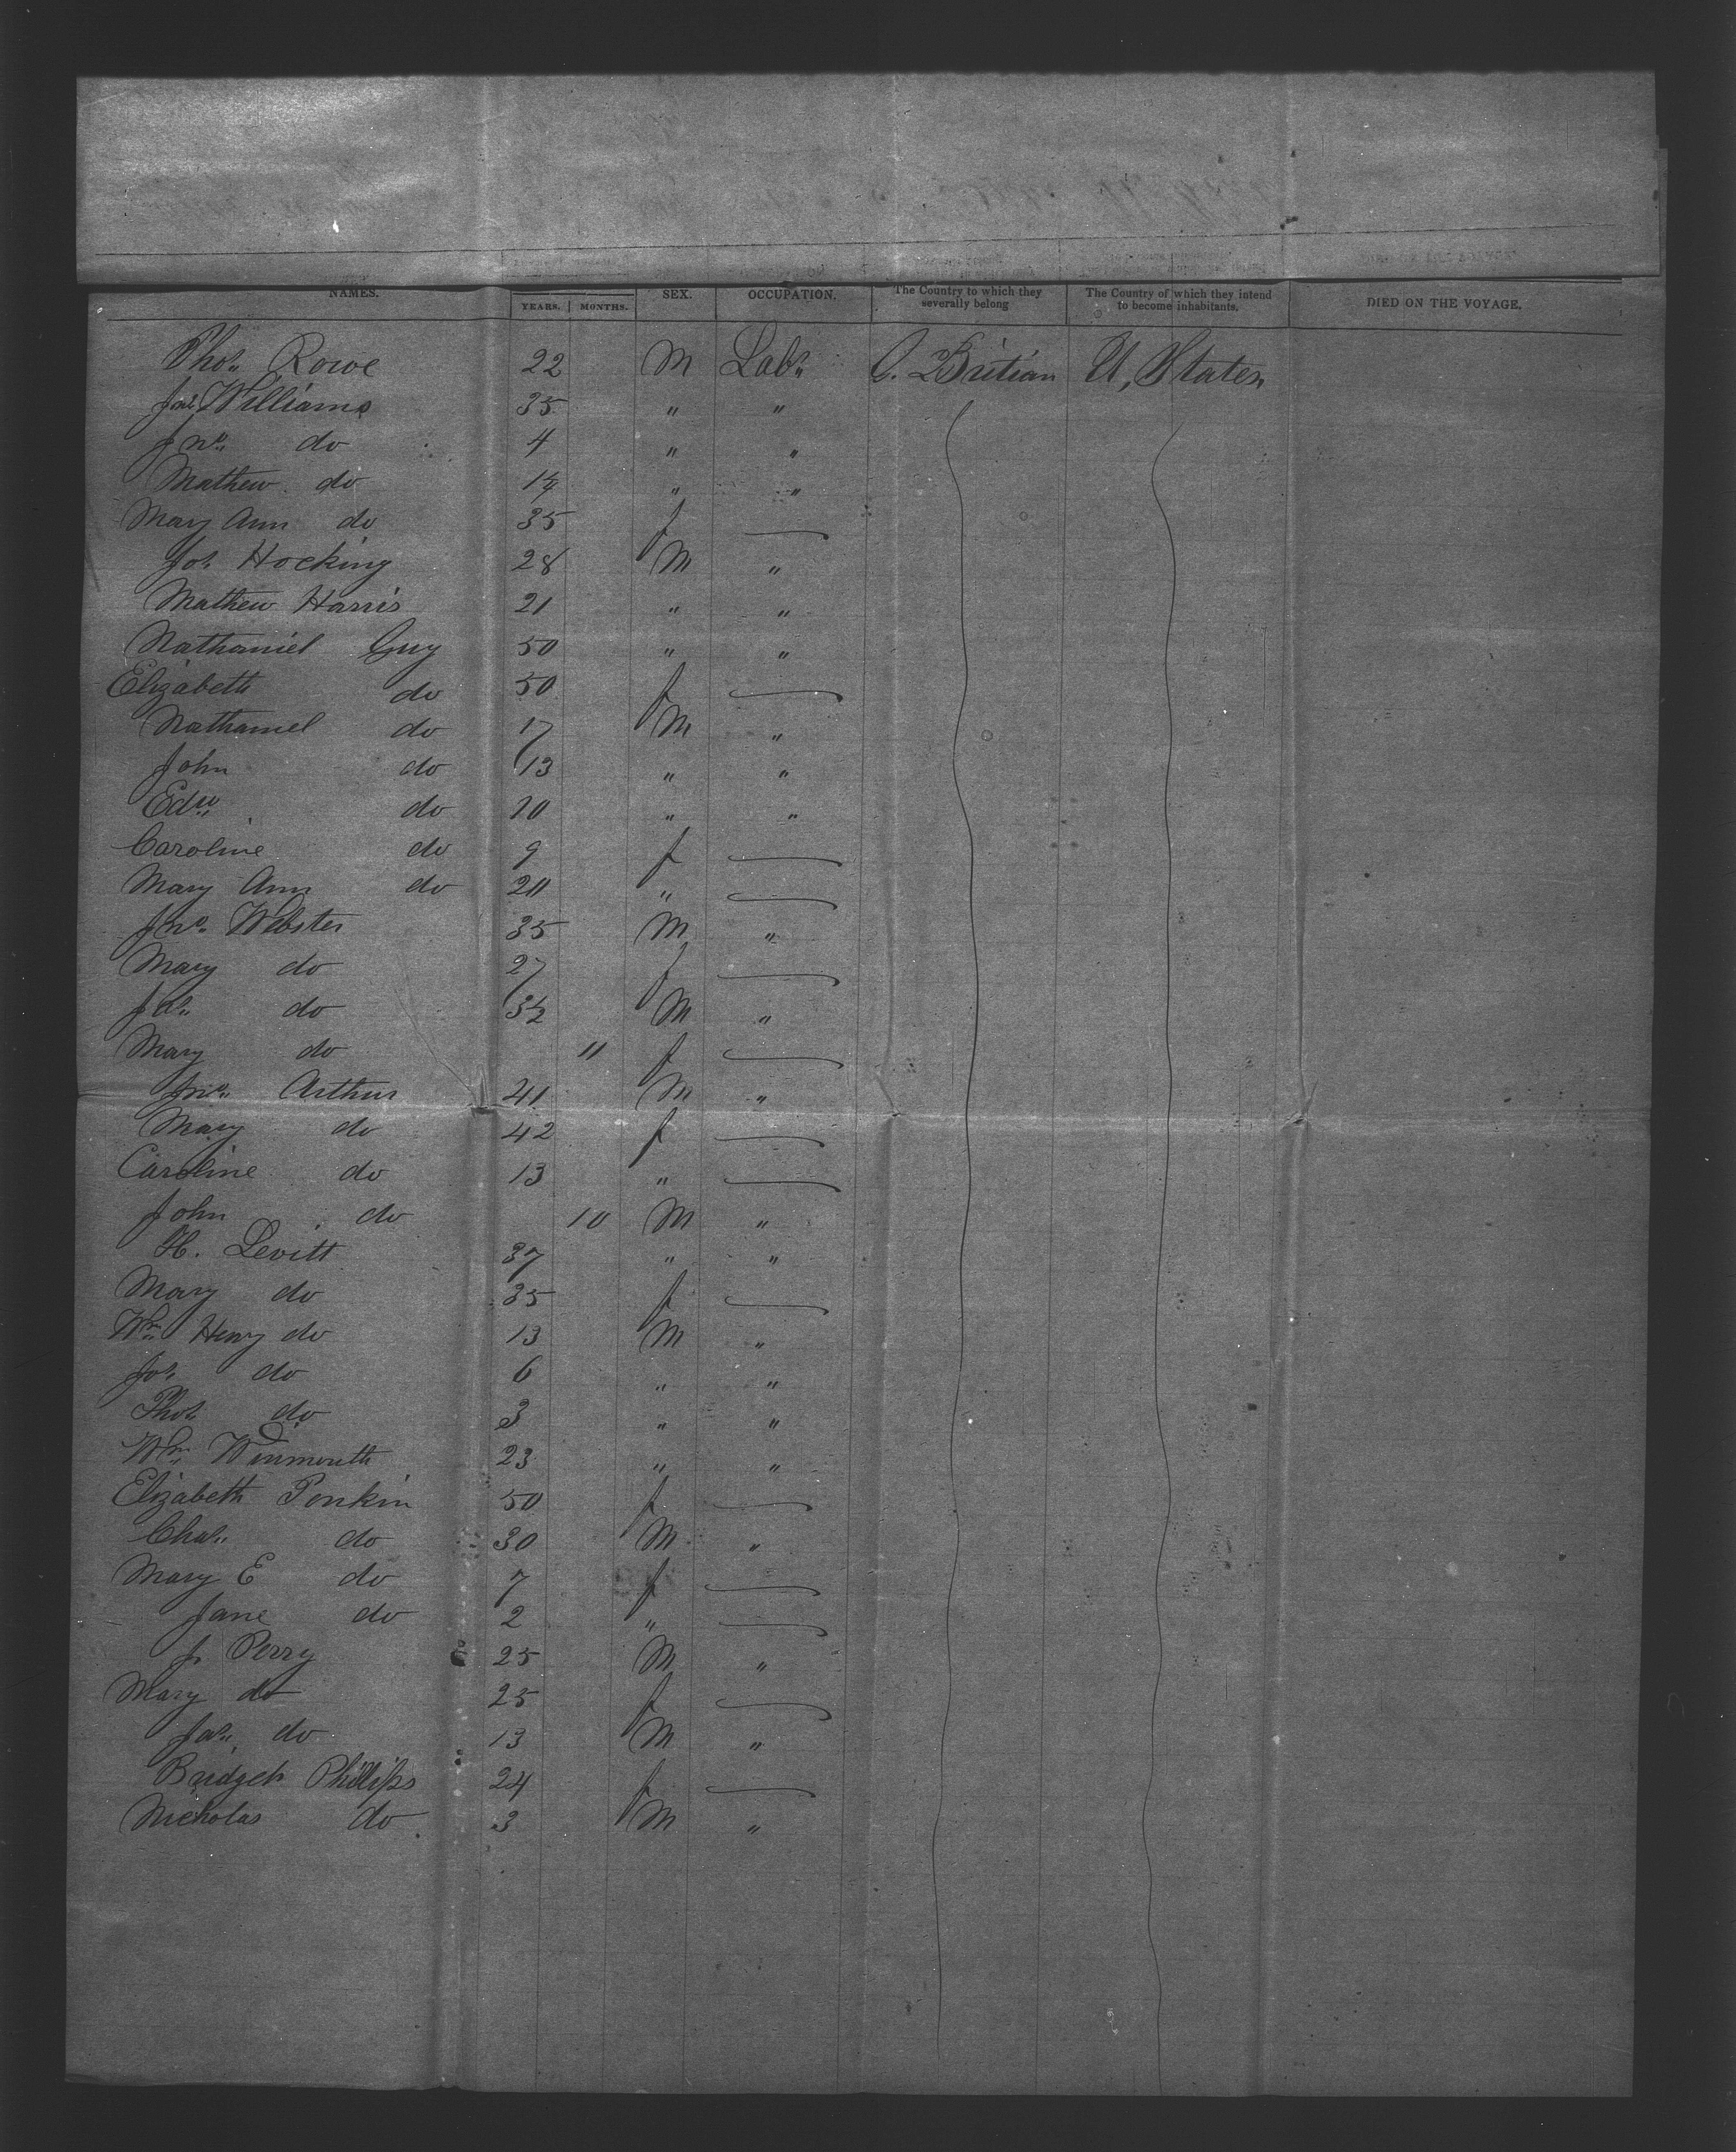 NAMES. YEARS. MONTHS. SEX. OCCUPATION. The Country to which they severally belong The Country of which they intend to become inhabitants. DIED ON THE VOYAGE.
Thos. Rowe 22 M Labr. G. Britian U, States
Jas. Williams 35 " "
Jno. do 4 " "
Mathew do 14 " "
Mary Ann do 35 f —
Jos. Hocking 28 M "
Mathew Harris 21 " "
Nathaniel Guy 50 " "
Elizabeth do 50 f —
Nathaniel do 17 M "
John do 13 " "
Edw. do 10 " "
Caroline do 9 f —
Mary Ann do 20 " —
Jno. Webster 35 M "
Mary do 27 f —
Jas. do 32 M "
Mary do 11 f —
Jno. Arthur 41 M "
Mary do 42 f —
Caroline do 13 " —
John do 10 M "
H. Levitt 37 " "
Mary do 35 f —
Wm. Henry do 13 M "
Jos. do 6 " "
Thos. do 3 " "
Wm. Winmouth 23 " "
Elizabeth Penkin 50 f —
Chas. do 30 M "
Mary E do 7 f —
Jane do 2 " —
J. Perry 25 M "
Mary do 25 f —
Jas. do 13 M "
Bridget Phillips 24 f —
Nicholas do 3 M "